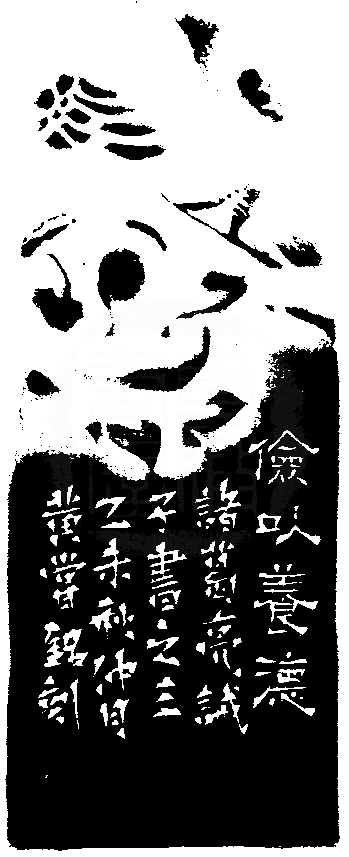 儉以養德
諸葛亮誡
子書之三
乙未秋仲月
黄嘗銘刻